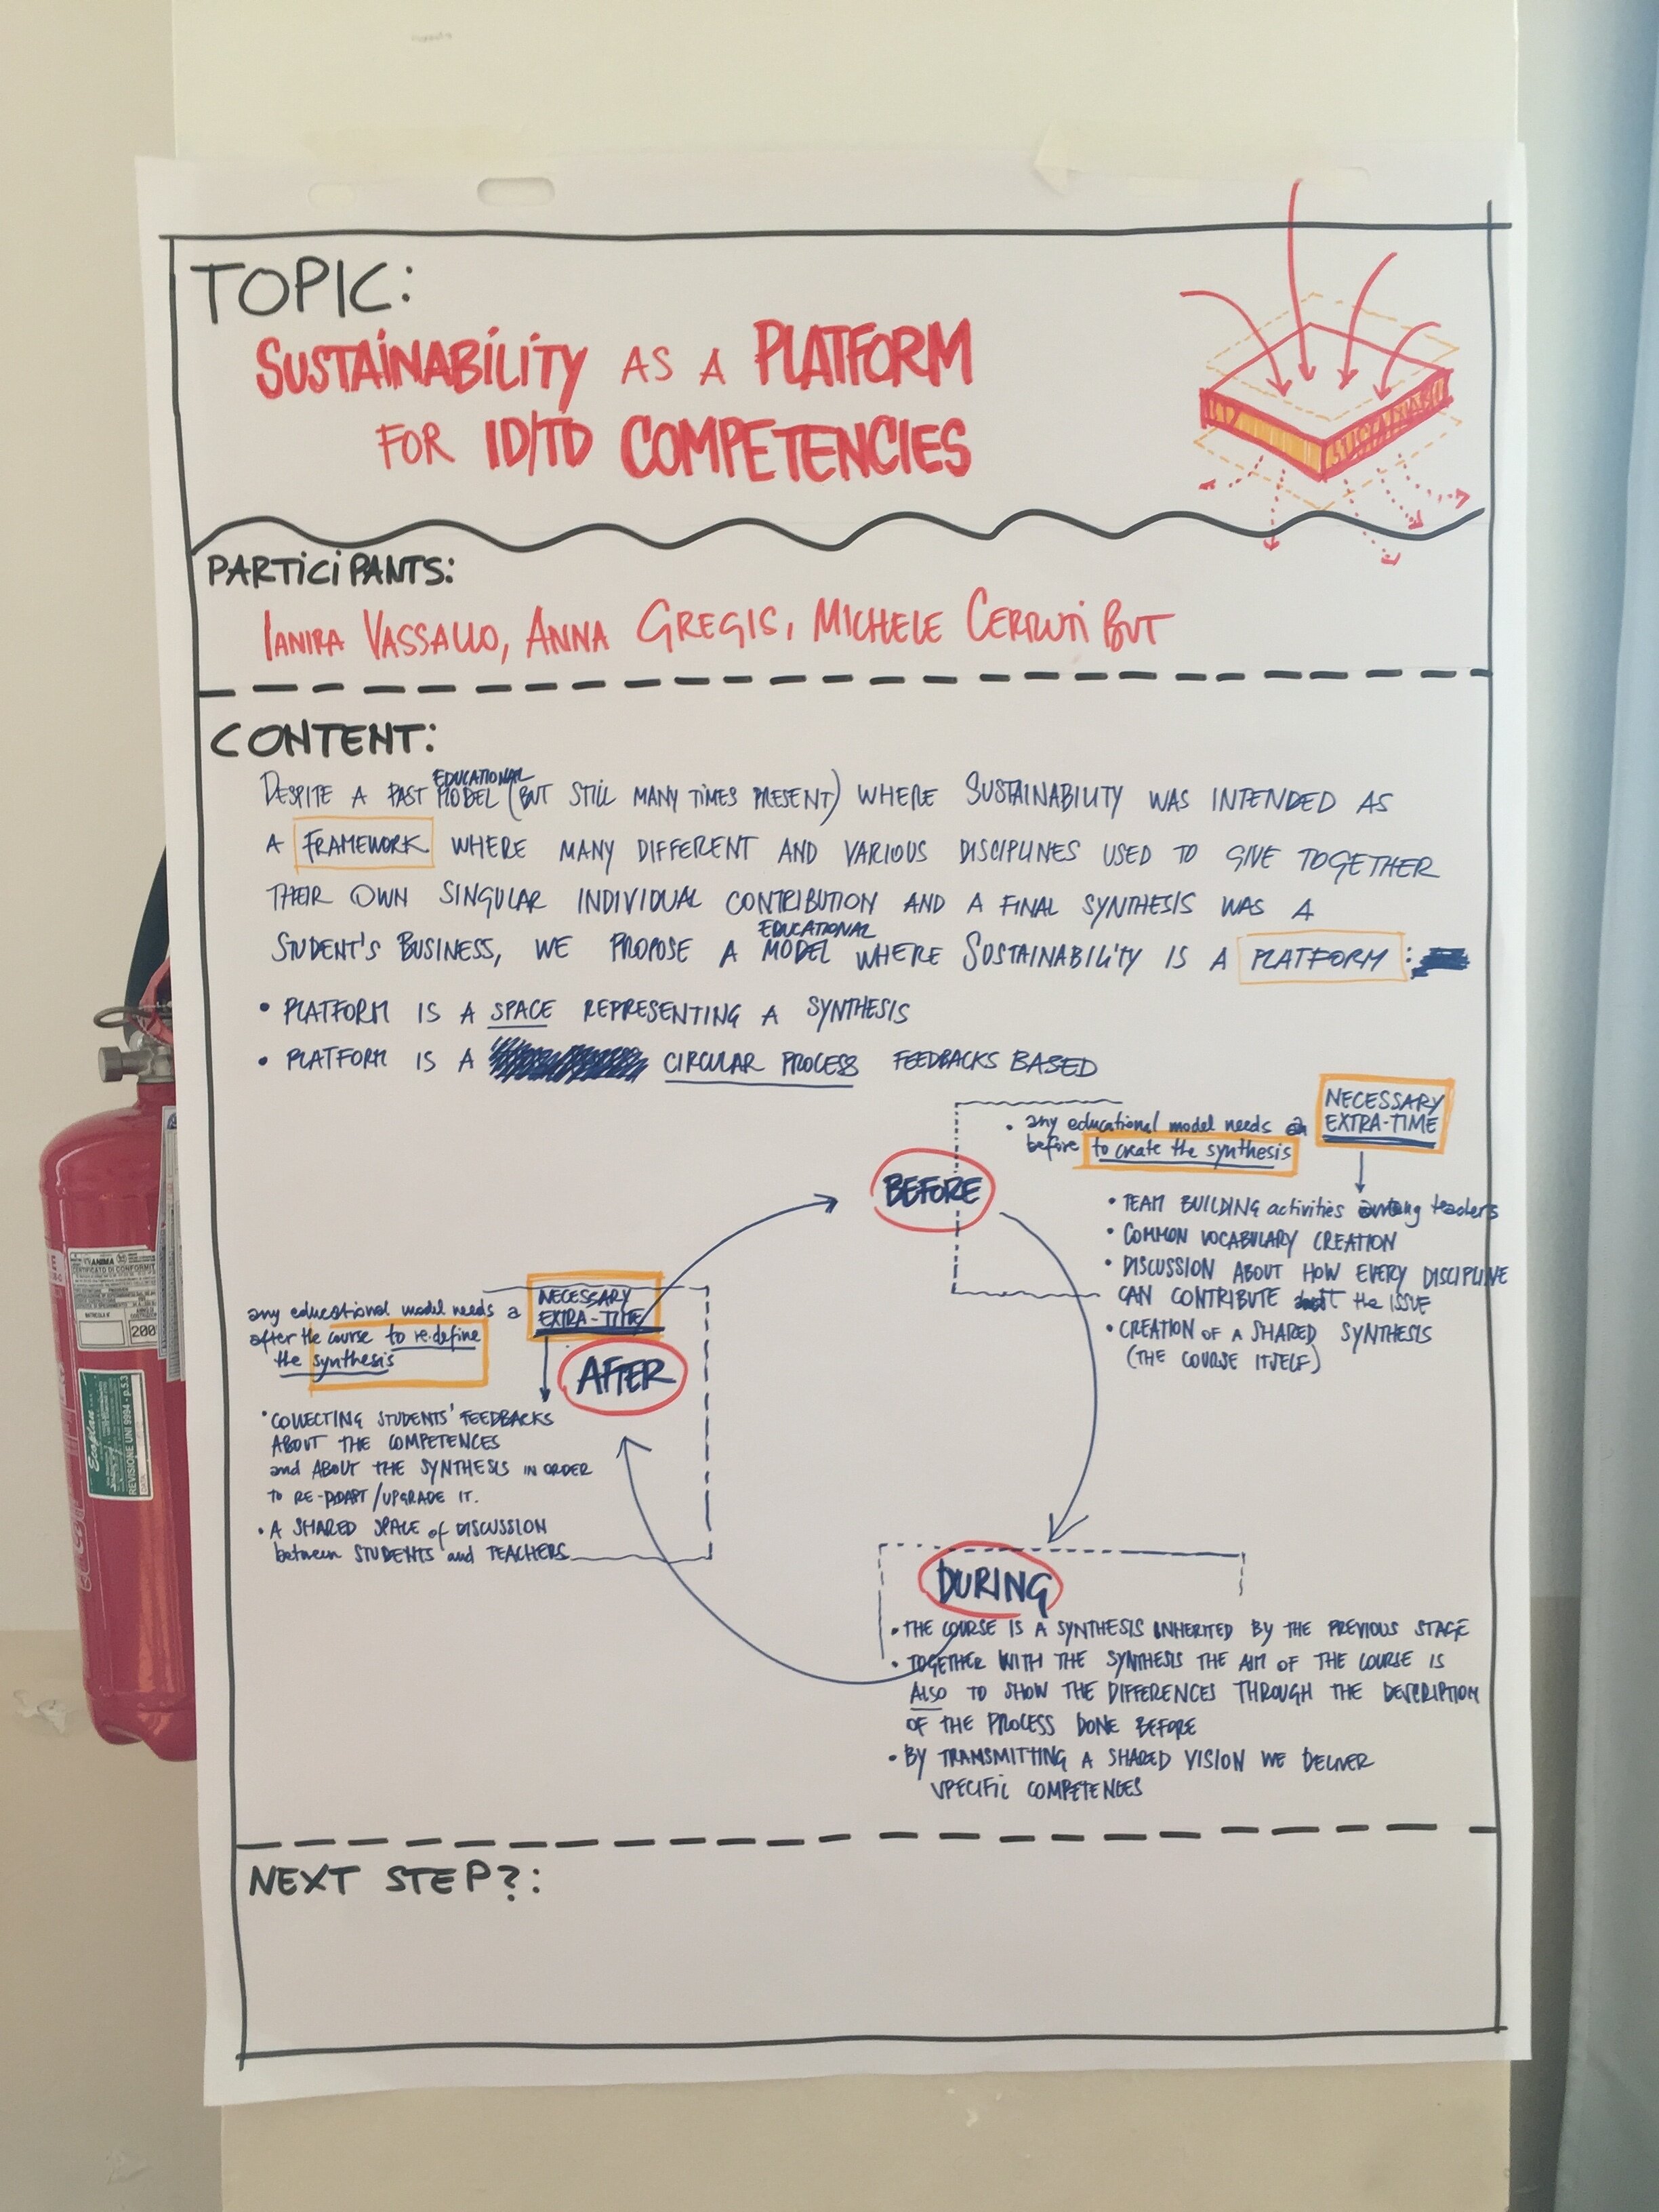 TOPIC:
SUSTAINABILITY AS A PLATFORM
FOR ID/TD COMPETENCIES
PARTICIPANTS:
IANIRA VASSALLO, ANNA GREGIS, MICHELE CERRUTI BUT
CONTENT:
DESPITE A PAST EDUCATIONAL MODEL (BUT STILL MANY TIMES PRESENT) WHERE SUSTAINABILITY WAS INTENDED AS
A FRAMEWORK WHERE MANY DIFFERENT AND VARIOUS DISCIPLINES USED TO GIVE TOGETHER
THEIR OWN SINGULAR INDIVIDUAL CONTRIBUTION AND A FINAL SYNTHESIS WAS A
STUDENT'S BUSINESS, WE PROPOSE A EDUCATIONAL MODEL WHERE SUSTAINABILITY IS A PLATFORM:
• PLATFORM IS A SPACE REPRESENTING A SYNTHESIS
• PLATFORM IS A CIRCULAR PROCESS FEEDBACKS BASED
BEFORE
• any educational model needs a NECESSARY
EXTRA-TIME
before to create the synthesis
• TEAM BUILDING activities among teachers
• COMMON VOCABULARY CREATION
• DISCUSSION ABOUT HOW EVERY DISCIPLINE
CAN CONTRIBUTE the ISSUE
• CREATION OF A SHARED SYNTHESIS
(THE COURSE ITSELF)
any educational model needs a NECESSARY
EXTRA-TIME
after the course to re-define
the synthesis
AFTER
• COLLECTING STUDENTS' FEEDBACKS
ABOUT THE COMPETENCES
and ABOUT THE SYNTHESIS IN ORDER
TO RE-ADAPT/UPGRADE IT.
• A SHARED SPACE of DISCUSSION
between STUDENTS and TEACHERS
DURING
• THE COURSE IS A SYNTHESIS INHERITED BY THE PREVIOUS STAGE
• TOGETHER WITH THE SYNTHESIS THE AIM OF THE COURSE IS
ALSO TO SHOW THE DIFFERENCES THROUGH THE DESCRIPTION
OF THE PROCESS DONE BEFORE
• BY TRANSMITTING A SHARED VISION WE DELIVER
SPECIFIC COMPETENCES
NEXT STEP?:
ANIMA
CERTIFICATO DI CONFORMIT
200
Ecoplan
REVISIONE UNI 9994 - p.5.3